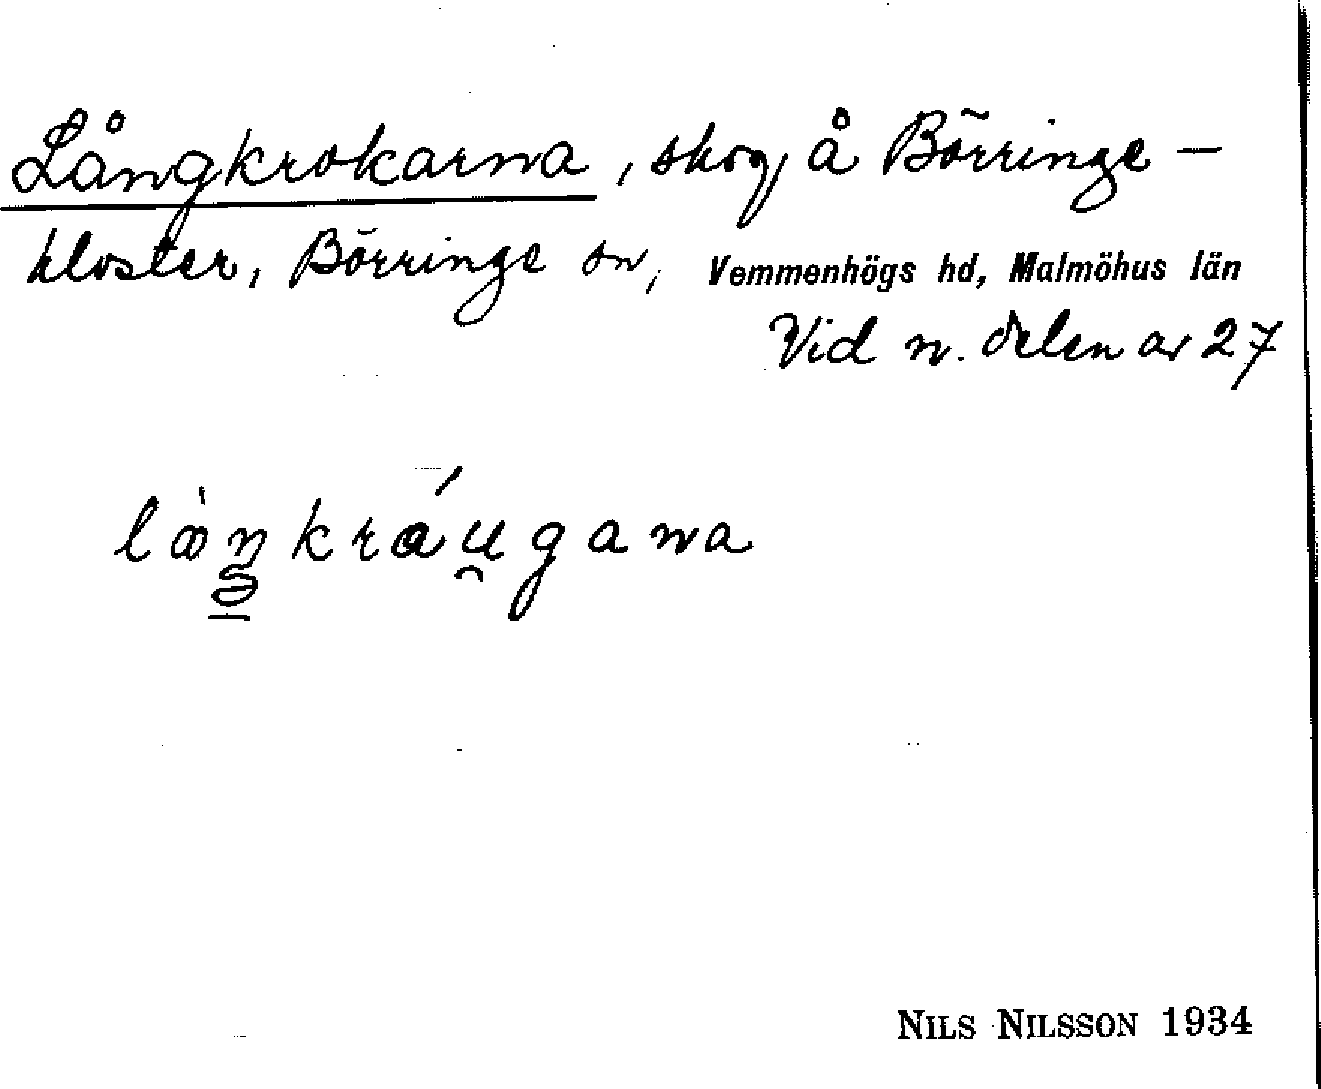 Långkrokarna, skog å Börringe-
kloster, Börringe sn, Vemmenhögs hd, Malmöhus län
Vid n. delen av 27
lòŋkráu̯gana
NILS NILSSON 1934